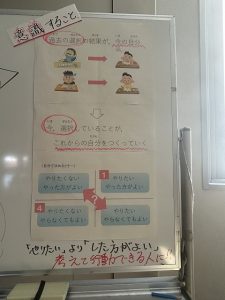 意識すること
過去の選択の結果が、今の自分
今、選択していることが、
これからの自分をつくっていく
やりたくない
やった方がよい
1
やりたい
やった方がよい
?
4
やりたくない
やらなくてもよい
やりたい
やらなくてもよい
「やりたい」より「した方がよい」
考えて行動ができる人に!!